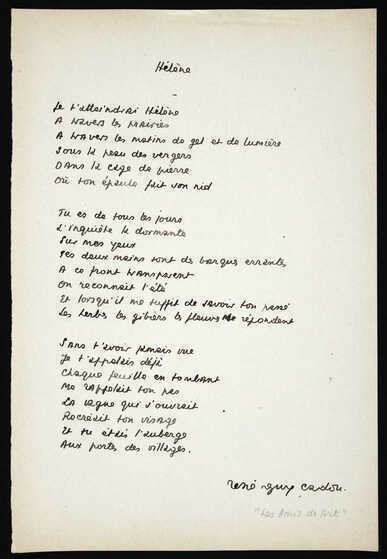 Hélène
Je t'atteindrai Hélène
A travers les prairies
A travers les matins de gel et de lumière
Sous la peau des vergers
Dans la cage de pierre
Où ton épaule fait son nid
Tu es de tous les jours
L'inquiète la dormante
Sur mes yeux
Tes deux mains sont des barques errantes
A ce front transparent
On reconnaît l'été
Et lorsqu'il me suffit de savoir ton passé
Les herbes les gibiers les fleuves me répondent
Sans t'avoir jamais vue
Je t'appelais déjà
Chaque feuille en tombant
Me rappelait ton pas
La vague qui s'ouvrait
Recréait ton visage
Et tu étais l'auberge
Aux portes des villages.
rené guy cadou.
"Les Amis de